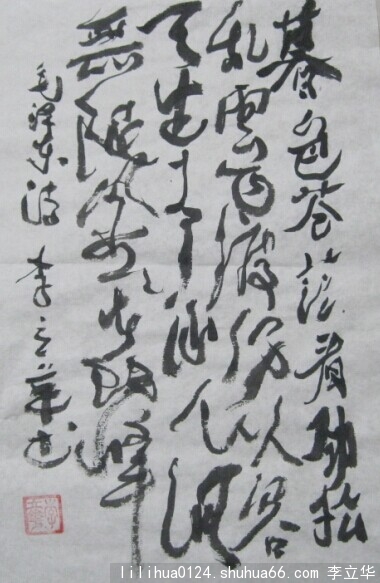 暮色苍茫看劲松
乱雲飞渡仍从容
天生一个仙人洞
無限风光在险峰
毛泽东诗 李立華书
lilihua0124.shuhua66.com 李立华